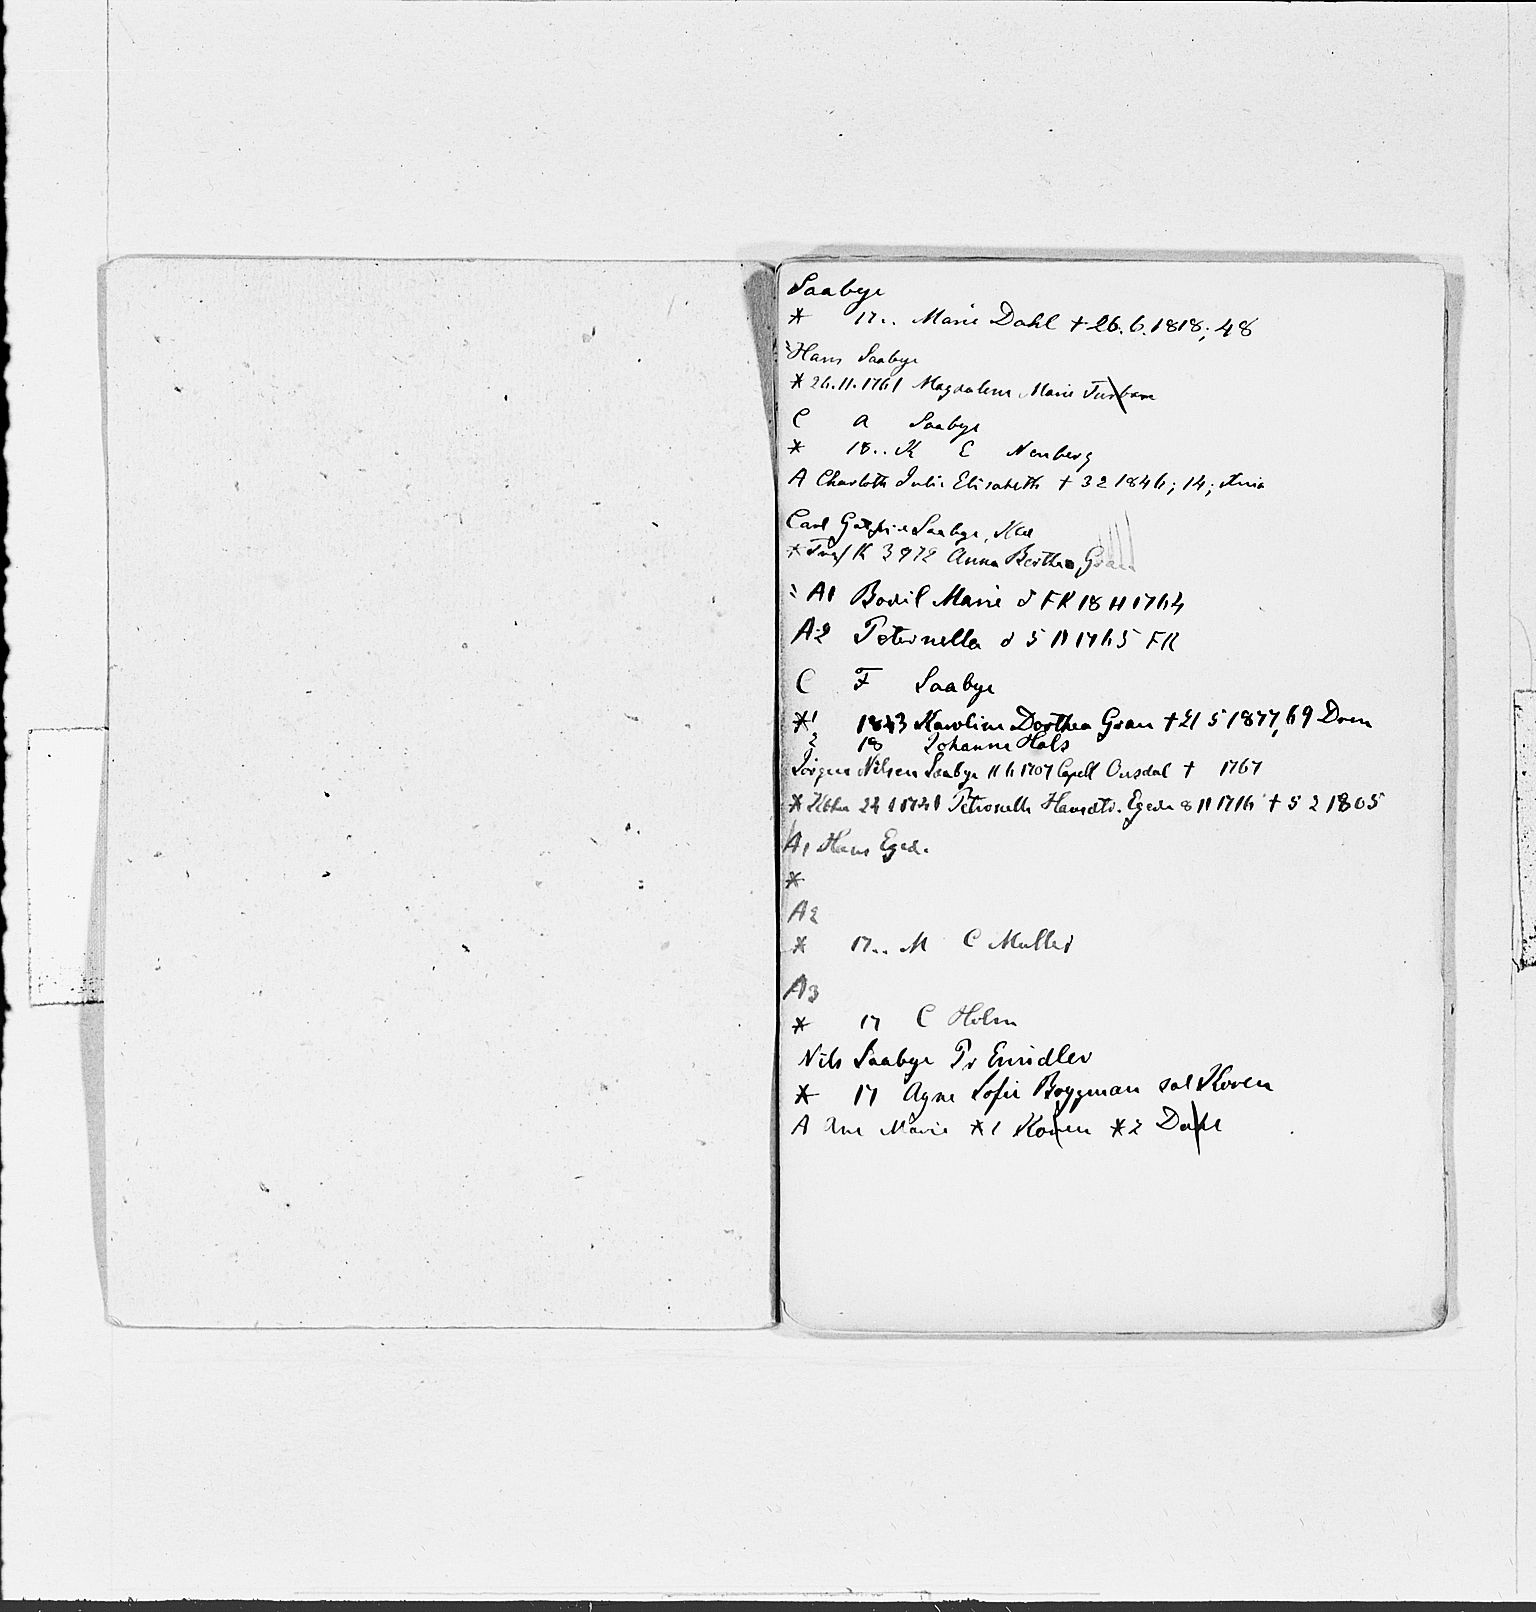 Saabye
* 17.. Marie Dahl + 26.6.1818; 48
Hans Saabye
* 26.11.1761 Magdalene Marie
C A Saabye
* 18.. K E Nenberg
A Charloth Julie Elisabeth + 3 2 1846; 14;
Carl Saabye,
* K 3 9 72 Anna Berthea Gran
A1 Bodil Marie d FK 18 11 1764
A2 Peternella d 5 11 1765 FK
C F Saabye
*1 1843 Karoline Dorthea Gran + 21 5 1877, 69 Dram
2 18 Johanne Hals
Jørgen Nilsen Saabye 11 6 1707 Capell + 1767
* 22 1741 Petronelle Hansdtr. Egede 8 11 1716 + 5 2 1805
A1 Hans Egede
*
A2
* 17.. M C Muller
A3
* 17 C Holm
Nils Saabye Pr
* 17 Agne Sofie Bryggman sal Koren
A Ane Marie *1 Koren *2 Dahl